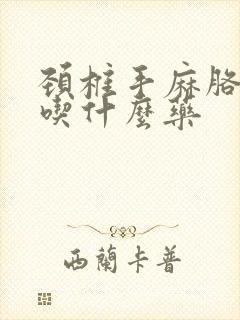 頸椎手麻胳
喫什麼藥
西蘭卡普